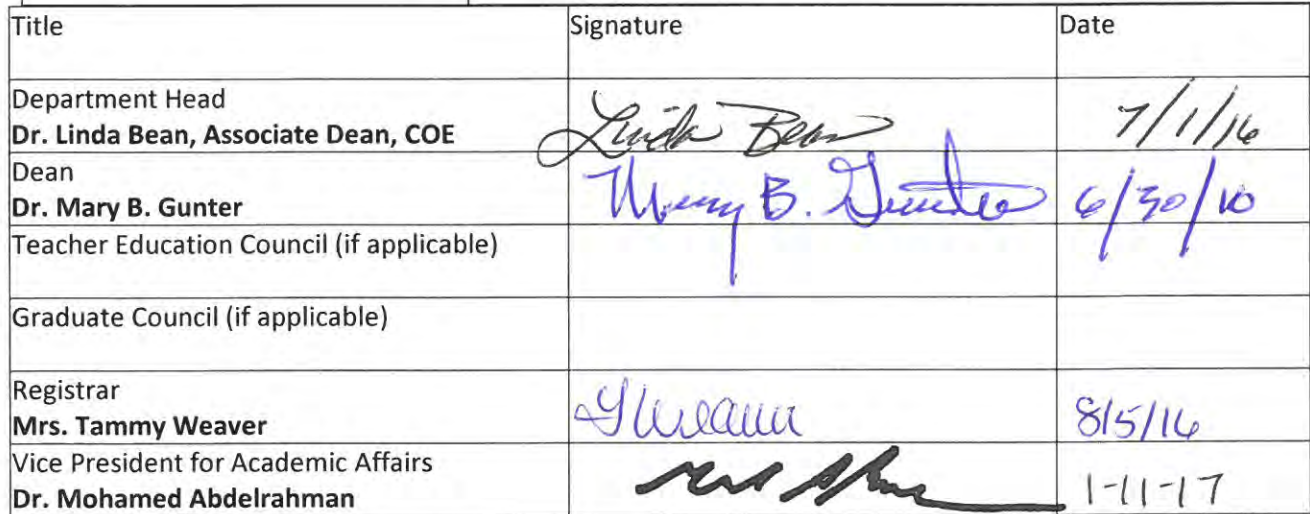 Title Signature Date
Department Head
Dr. Linda Bean, Associate Dean, COE Linda Bean 7/1/16
Dean
Dr. Mary B. Gunter Mary B. Gunter 6/30/10
Teacher Education Council (if applicable)
Graduate Council (if applicable)
Registrar
Mrs. Tammy Weaver TWeaver 8/5/16
Vice President for Academic Affairs
Dr. Mohamed Abdelrahman 1-11-17